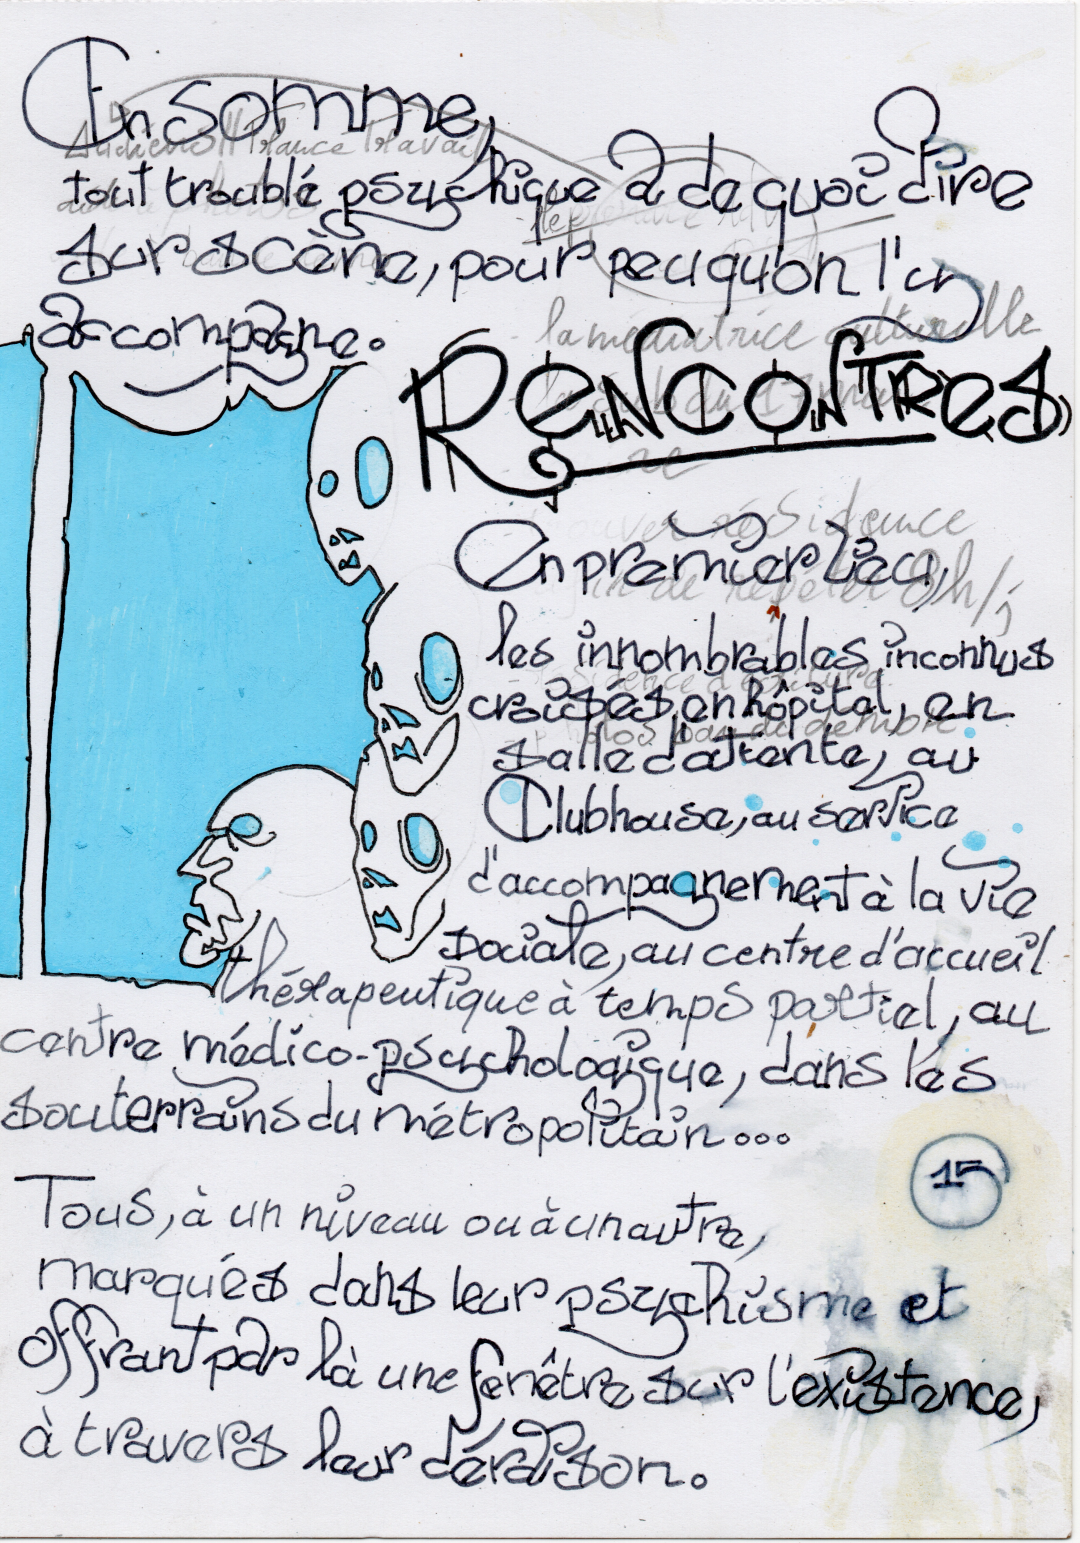 En somme,
tout troublé psychique a de quoi dire
sur scène, pour peu qu'on l'y
accompagne.
RENCONTRES
En premier lieu,
les innombrables inconnus
croisés en hôpital, en
salle d'attente, au
Clubhouse, au service
d'accompagnement à la vie
sociale, au centre d'accueil
thérapeutique à temps partiel, au
centre médico-psychologique, dans les
souterrains du métropolitain...
15
Tous, à un niveau ou à un autre,
marqués dans leur psychisme et
offrant par là une fenêtre sur l'existence,
à travers leur déraison.
la médiatrice culturelle
résidence
8h/j